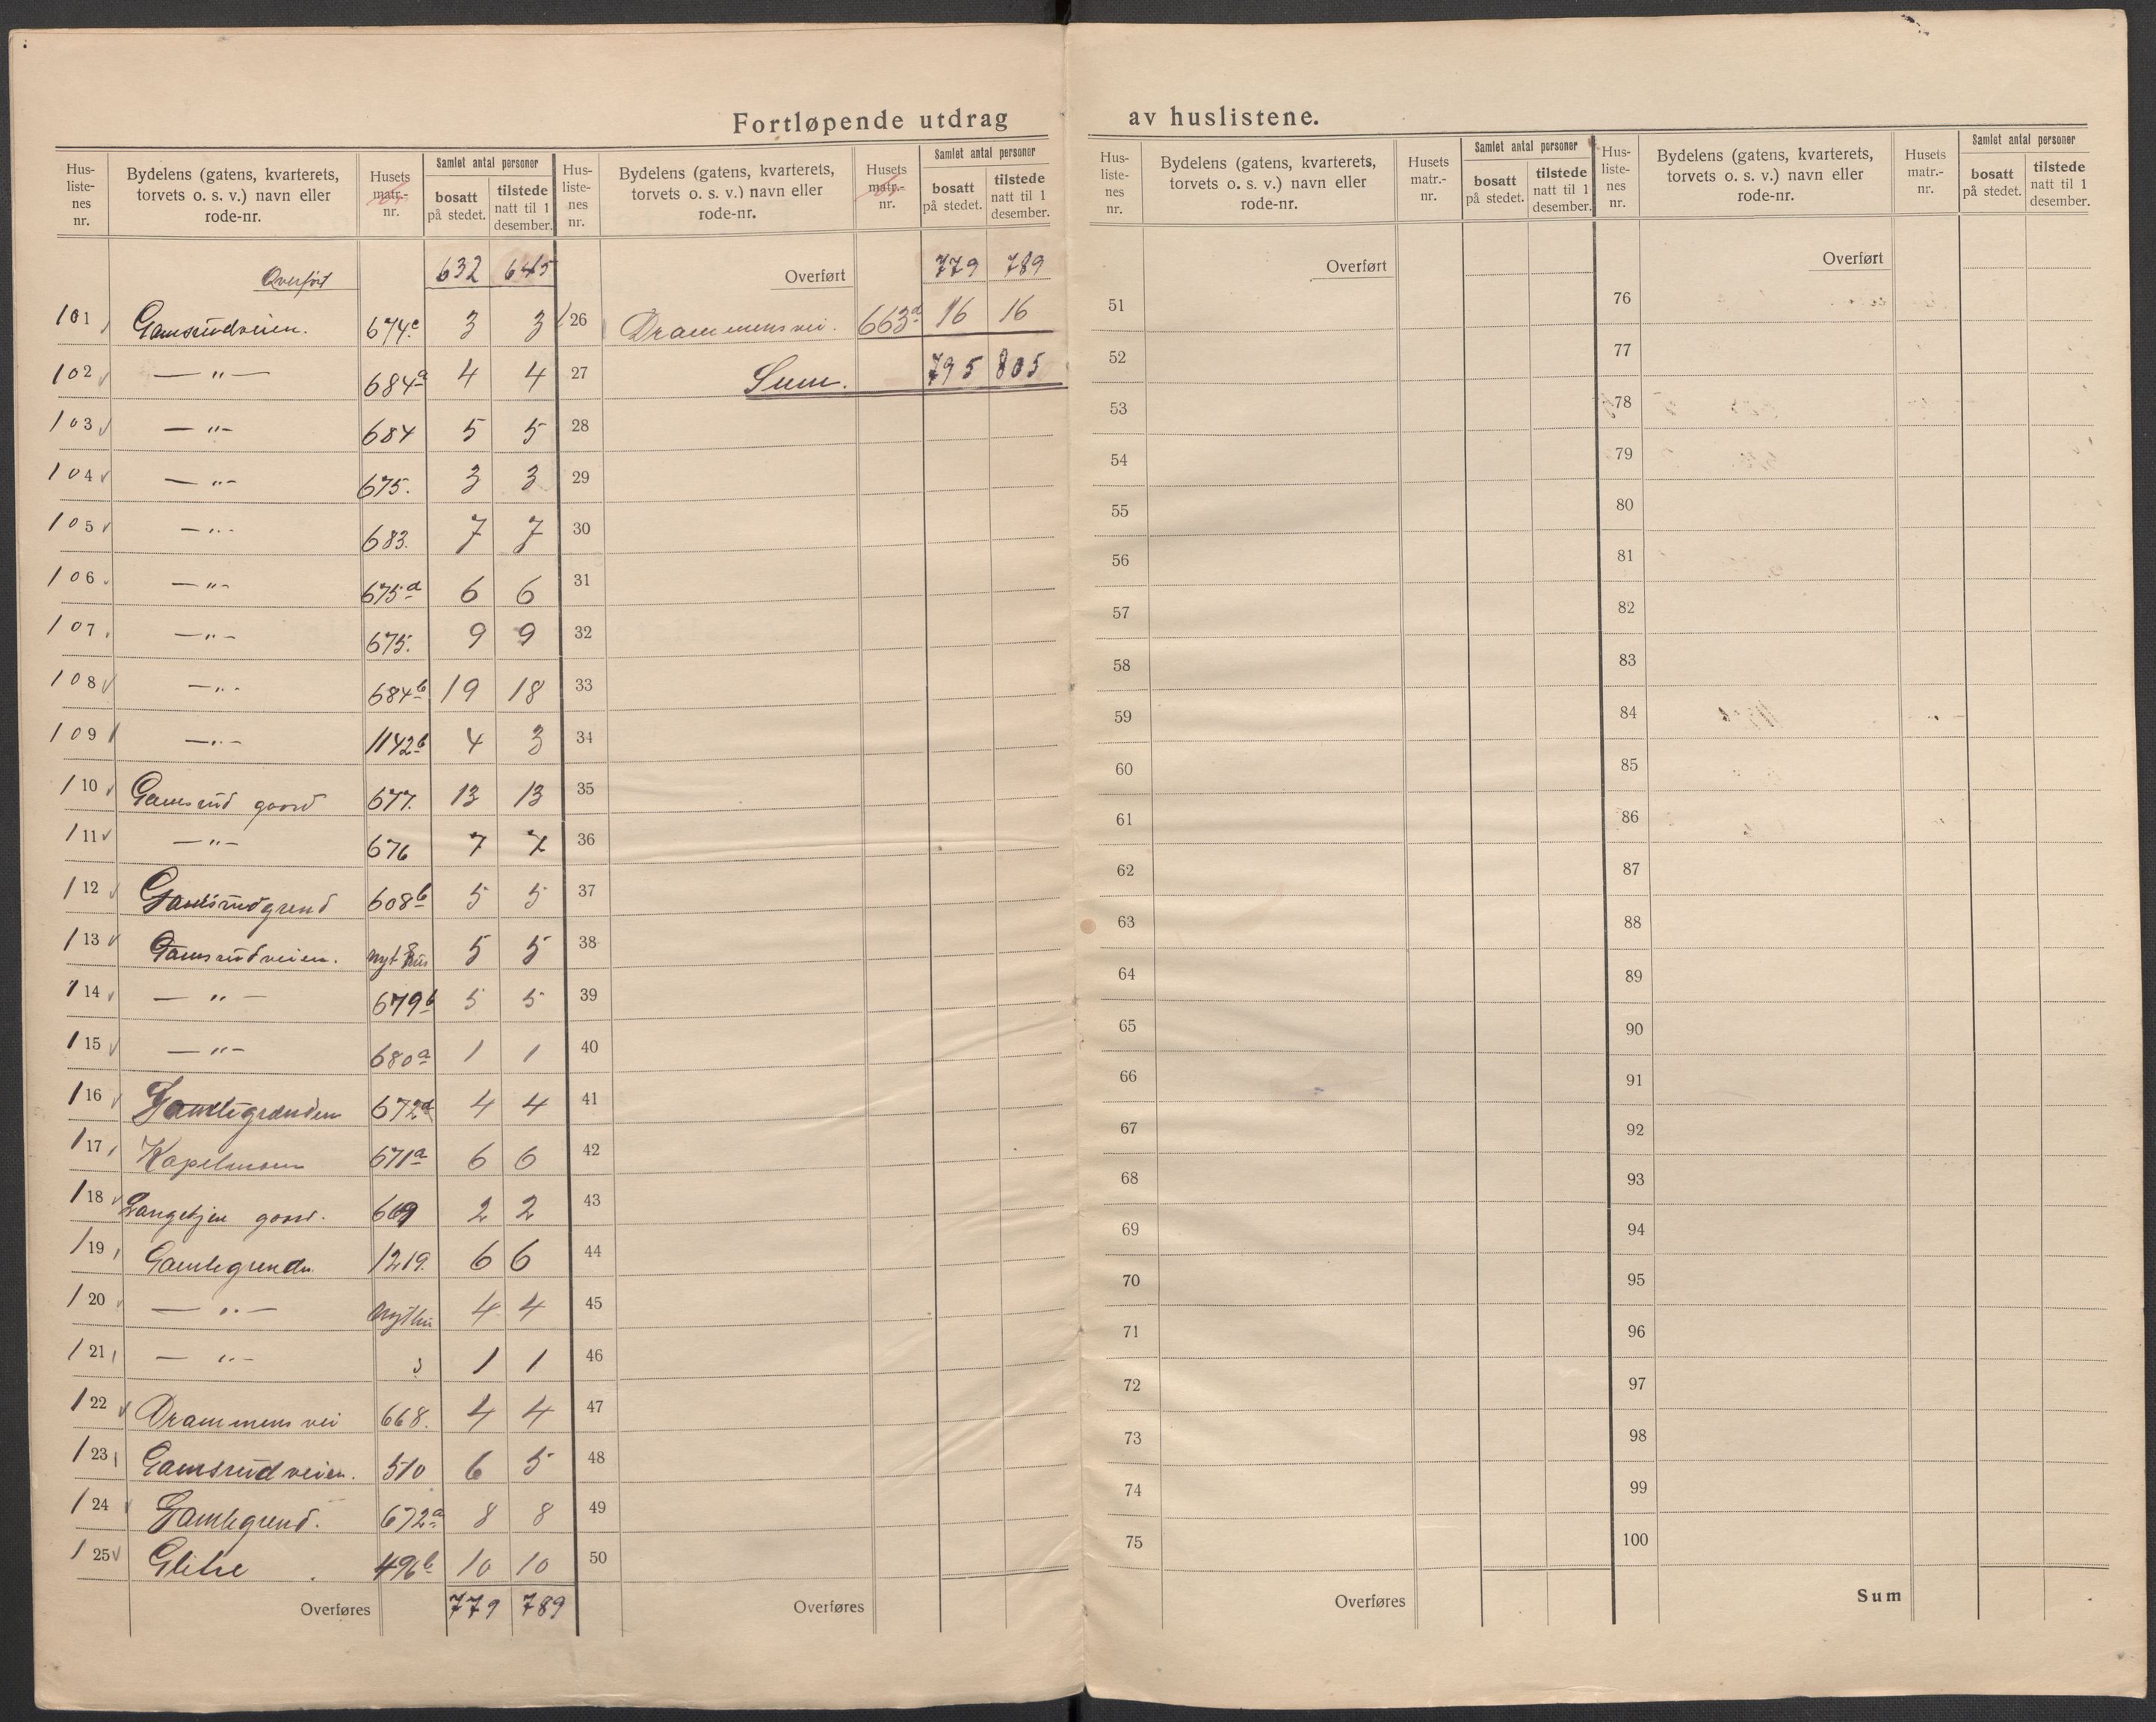 Fortløpende utdrag av huslistene.
Hus-listenes nr. | Bydelens (gatens, kvarterets, torvets o. s. v.) navn eller rode-nr. | Husets matr.-nr. | Samlet antal personer bosatt på stedet. | tilstede natt til 1 desember.
Overført 632 645
101 Gamsrudveien. 674c 3 3
102 — " — 684a 4 4
103 — " — 684 5 5
104 — " — 675. 3 3
105 — " — 683. 7 7
106 — " — 675d 6 6
107 — " — 675. 9 9
108 — " — 684b 19 18
109 — " — 1142b 4 3
110 Gamsrud gaard 677. 13 13
111 — " — 676 7 7
112 Gamsrudgrend 608b 5 5
113 Gamsrudveien. nyt hus 5 5
114 — " — 679b 5 5
115 — " — 680a 1 1
116 Gamlegrænden 672d 4 4
117 Kapelmoen 671a 6 6
118 Langekjen gaard. 669 2 2
119 Gamlegrenda 1219. 6 6
120 — " — Nyt hus 4 4
121 — " — 1 1
122 Drammens vei 668. 4 4
123 Gamsrudveien. 510 6 5
124 Gamlegrend. 672a 8 8
125 Glitre 496b 10 10
Overføres 779 789
Hus-listenes nr. | Bydelens (gatens, kvarterets, torvets o. s. v.) navn eller rode-nr. | Husets matr.-nr. | Samlet antal personer bosatt på stedet. | tilstede natt til 1 desember.
Overført 779 789
126 Drammensvei. 663d 16 16
27 Sum. 795 805
28
29
30
31
32
33
34
35
36
37
38
39
40
41
42
43
44
45
46
47
48
49
50
Overføres
Hus-listenes nr. | Bydelens (gatens, kvarterets, torvets o. s. v.) navn eller rode-nr. | Husets matr.-nr. | Samlet antal personer bosatt på stedet. | tilstede natt til 1 desember.
Overført
51
52
53
54
55
56
57
58
59
60
61
62
63
64
65
66
67
68
69
70
71
72
73
74
75
Overføres
Hus-listenes nr. | Bydelens (gatens, kvarterets, torvets o. s. v.) navn eller rode-nr. | Husets matr.-nr. | Samlet antal personer bosatt på stedet. | tilstede natt til 1 desember.
Overført
76
77
78
79
80
81
82
83
84
85
86
87
88
89
90
91
92
93
94
95
96
97
98
99
100
Sum